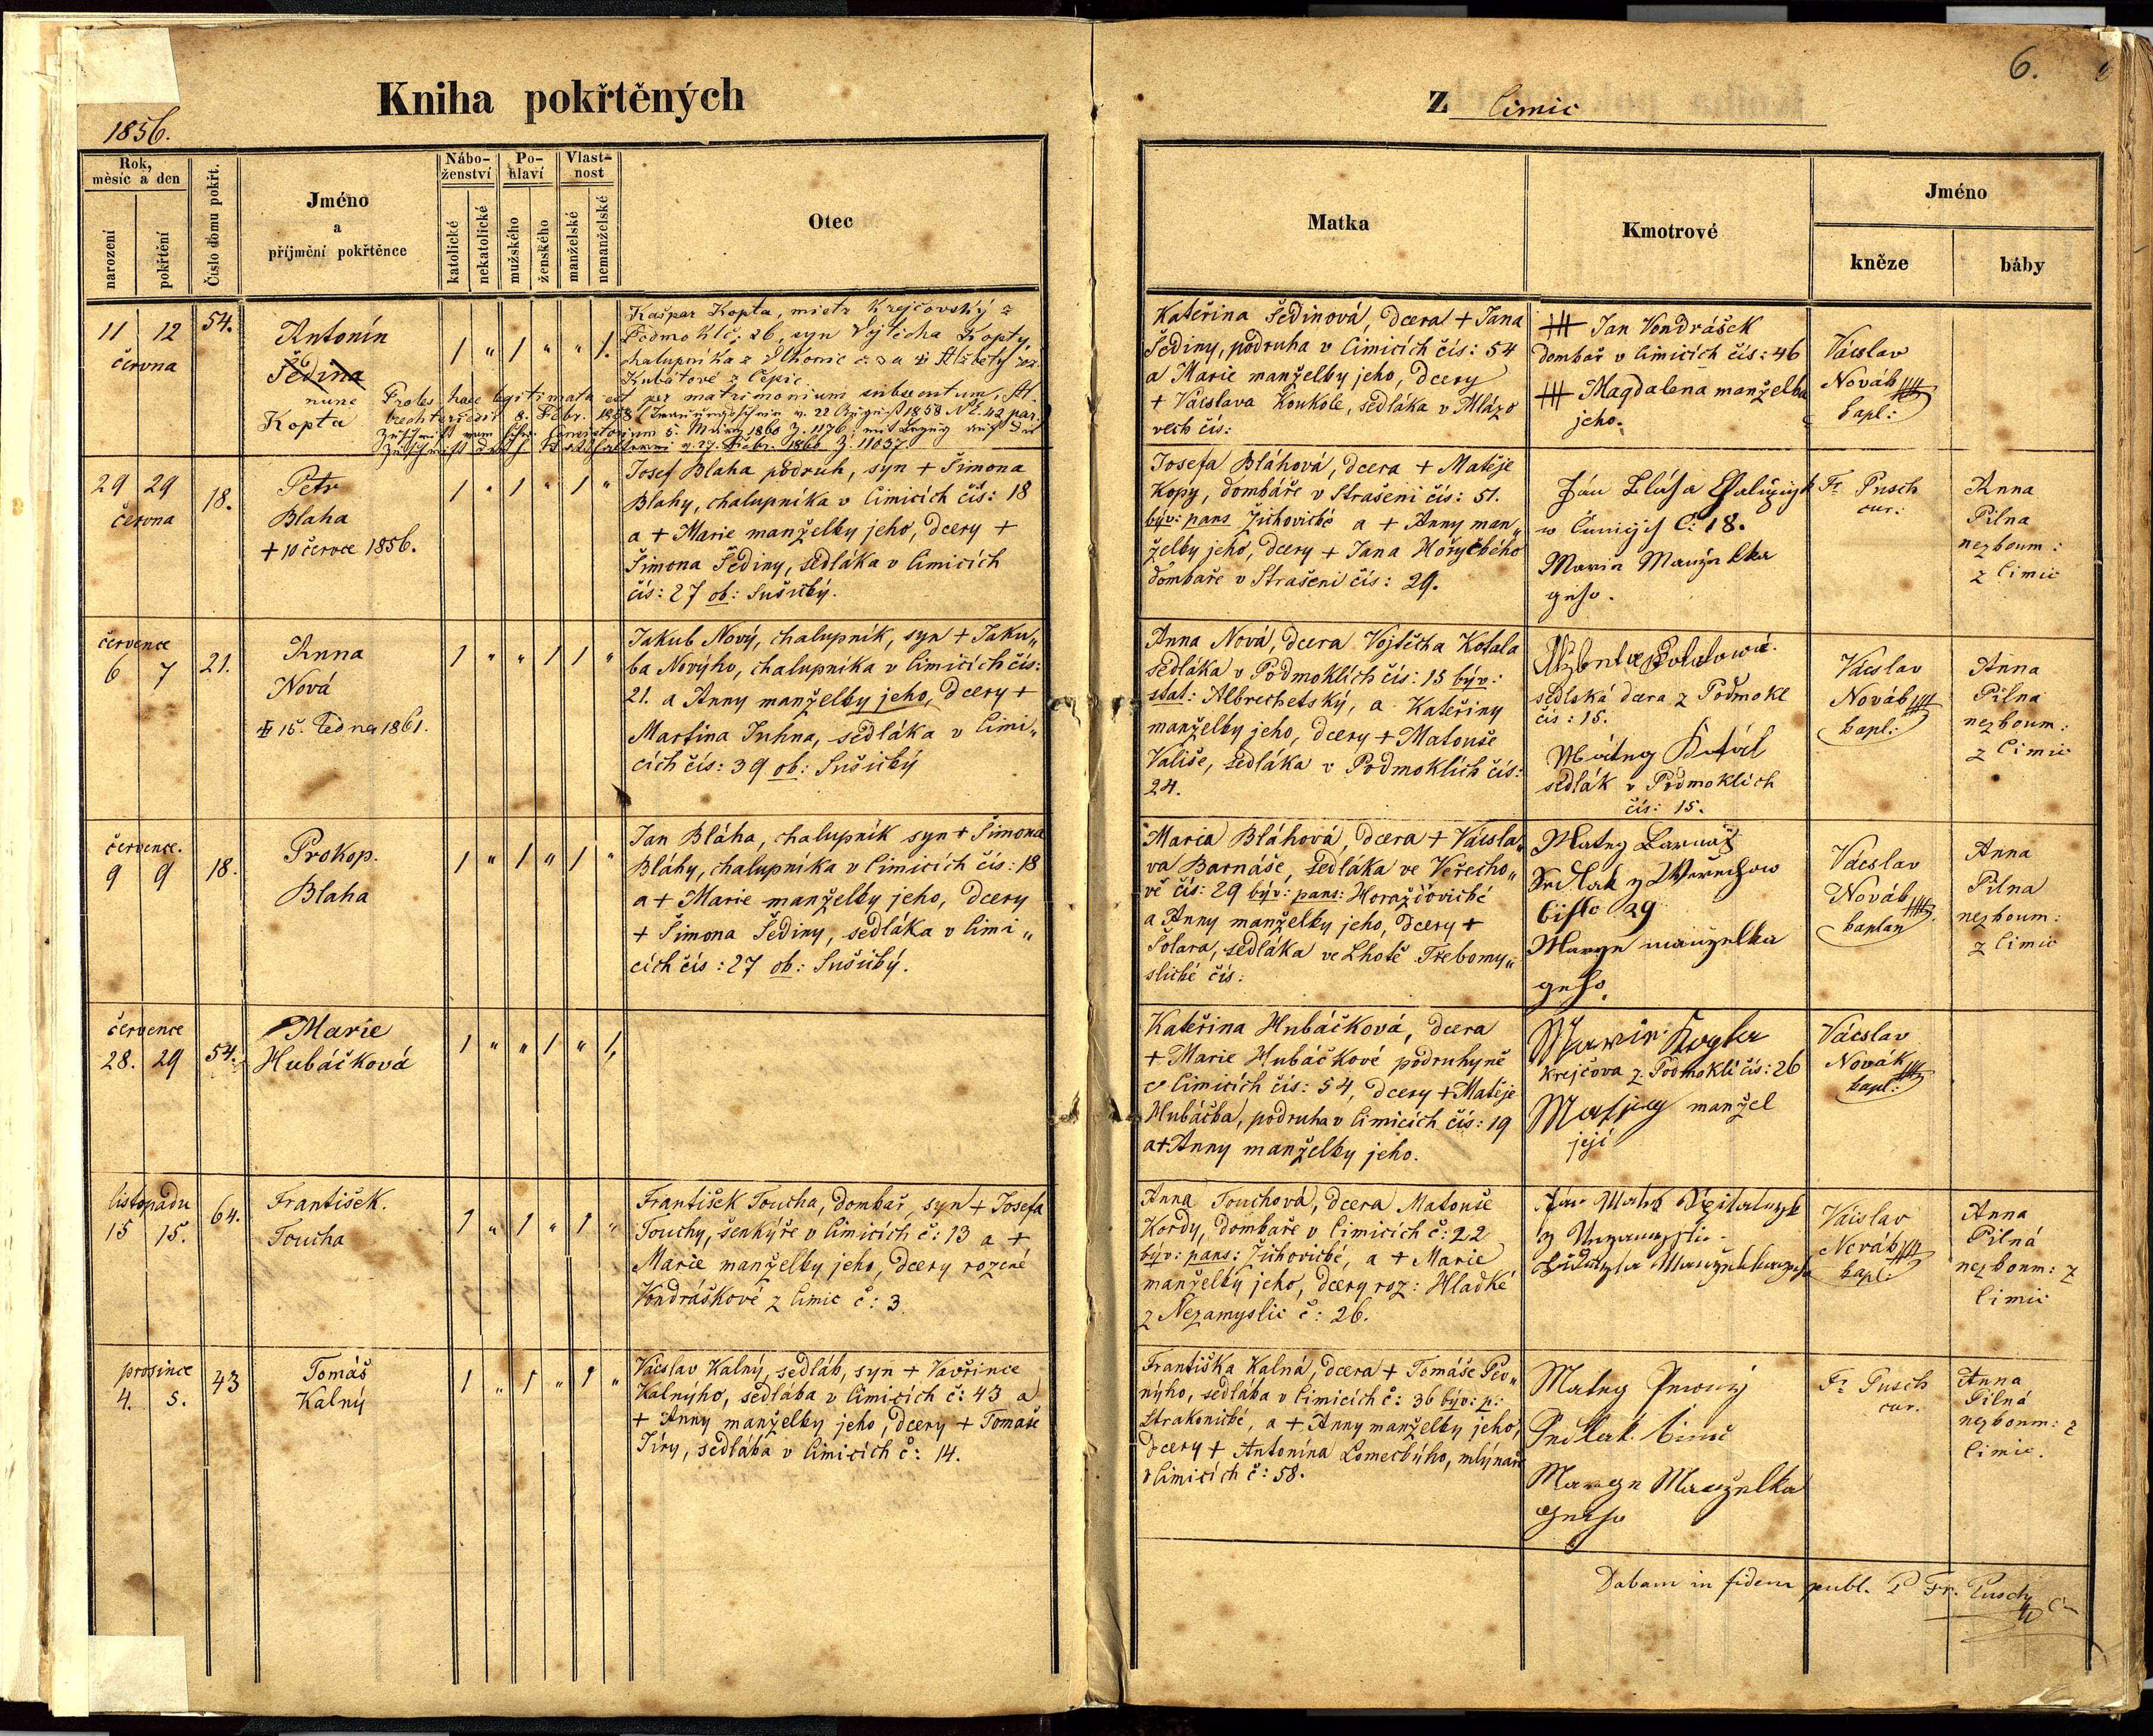 6.
Kniha pokřtěných
Z Cimic
1856.
Rok, měsíc a den
narození
pokřtění
Číslo domu pokřt.
Jméno
a
příjmění pokřtěnce
Nábo-
ženství
katolické
nekatolické
Po-
hlaví
mužského
ženského
Vlast-
nost
manželské
nemanželské
Otec
Matka
Kmotrové
Jméno
kněze
báby
11 12
června
54.
Antonín
Šedina
nunc
Kopta
1 " 1 " " 1.
Kašpar Kopta, mistr Krejčovský z
Podmoklí č: 26, syn Vojtěcha Kopty,
chalupníka z
a Alžběty roz.
Kubátové z Čepic.
Proles haec legitimata est per matrimonium subsequutum,
8. Febr. 1858
v. 22 August 1858 N. E. 42 par.
Consistorium 5. 1860 Z. 1176
1860 Z. 11037
Kateřina Šedinová, dcera + Jana
Šediny, podruha v Cimicích čís: 54
a Marie manželky jeho, dcery
+ Václava Koukole, sedláka v Mlázo
vech čís:
+++ Jan Vondrášek
domkař v Cimicích čís: 46
+++ Magdalena manželka
jeho.
Vácslav
Novák
kapl:
29 29
června
18.
Petr
Blaha
+ 10 července 1856.
1 " 1 " 1 "
Josef Blaha podruh, syn + Šimona
Blahy, chalupníka v Cimicích čís: 18
a + Marie manželky jeho, dcery +
Šimona Šediny, sedláka v Cimicích
čís: 27 ok: Sušický.
Josefa Bláhová, dcera + Matěje
Kopy, domkáře v Strašeni čís: 51.
býv: pans Žichovické a + Anny man„
želky jeho, dcery + Jana Hořyckého
domkaře v Strašeni čís: 29.
Jan Bláha
C: 18.
Maria Manželka
geho.
Fr Pusch
cur:
Anna
Pilna
nezkoum:
z Cimic
července
6 7
21.
Anna
Nová
+ 15. Ledna 1861.
1 " " 1 1 "
Jakub Nový, chalupník, syn + Jaku„
ba Novýho, chalupníka v Cimicích čís:
21. a Anny manželky jeho, dcery +
Martina Juhna, sedláka v Cimi„
cích čís: 39 ok: Sušický
Anna Nová, dcera Vojtěcha Kotala
sedláka v Podmoklích čís: 15 býv:
stat: Albrechetský, a Kateřiny
manželky jeho, dcery + Matouše
Vališe, sedláka v Podmoklích čís:
24.
Alžběta
sedlská dcera z Podmokl
čís: 15.
Matěg Kotál
sedlák v Podmoklích
čís: 15.
Vácslav
Novák
kapl:
Anna
Pilna
nezkoum:
z Cimic
července.
9 9
18.
Prokop.
Blaha
1 " 1 " 1 "
Jan Bláha, chalupník syn + Šimona
Bláhy, chalupníka v Cimicích čís: 18
a + Marie manželky jeho, dcery
+ Šimona Šediny, sedláka v Cimi„
cích čís: 27 ok: Sušický.
Maria Bláhová, dcera + Vácsla„
va Barnáše, sedláka ve Veřecho„
vě čís: 29 býv: pans: Horažďovické
a Anny manželky jeho, dcery +
Šolara, sedláka ve Lhotě Třebomy„
slické čís:
Matěg Barnáš
Sedlak z Weřechow
číslo 29
Marye manželka
geho.
Vácslav
Novák
kaplan
Anna
Pilna
nezkoum:
z Cimic
července
28. 29
54.
Marie
Hubáčková
1 " " 1 " 1,
Kateřina Hubáčková, dcera
+ Marie Hubáčkové podruhyně
v Cimicích čís: 54, dcery + Matěje
Hubáčka, podruha v Cimicích čís: 19
a + Anny manželky jeho.
Marie Kopta
krejčova z Podmoklí čís: 26
Matieg manžel
její
Vácslav
Novák
kapl:
listopadu
15 15.
64.
František.
Toucha
1 " 1 " 1 "
František Toucha, domkař, syn + Josefa
Touchy, šenkýře v Cimicích č: 13 a +
Marie manželky jeho, dcery rozené
Vondráškové z Cimic č: 3.
Anna Touchová, dcera Matouše
Kordy, domkaře v Cimicích č: 22
býv: pans: Žichovické, a + Marie
manželky jeho, dcery roz: Hladké
z Nezamyslic č: 26.
Jan
z
Manželka
Vácslav
Novák
kapl:
Anna
Pilná
nezkoum: z
Cimic
prosince
4. 5.
43
Tomáš
Kalný
1 " 1 " 1 "
Vácslav Kalný, sedlák, syn + Vavřince
Kalnýho, sedláka v Cimicích č: 43 a
+ Anny manželky jeho, dcery + Tomaše
Jíry, sedláka v Cimicích č: 14.
Františka Kalná, dcera + Tomáše Pev„
nýho, sedláka v Cimicích č: 36 býv: p:
Strakonické, a + Anny manželky jeho,
dcery + Antonína Lomeckýho, mlynaře
v Cimicích č: 58.
Matěg Pewný
Sedlak
Marye Manželka
geho
Fr Pusch
cur.
Anna
Pilná
nezkoum: z
Cimic.
Dabam in fidem publ. P Fr. Pusch